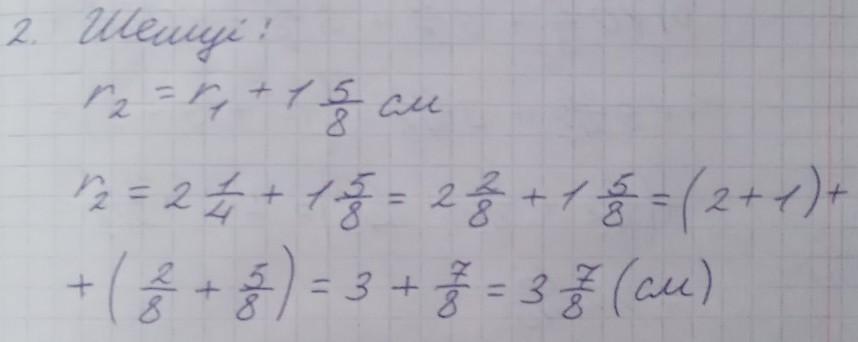 2. Шешуі:
r₂ = r₁ + 1 5/8 см
r₂ = 2 1/4 + 1 5/8 = 2 2/8 + 1 5/8 = (2+1)+
+ (2/8 + 5/8) = 3 + 7/8 = 3 7/8 (см)